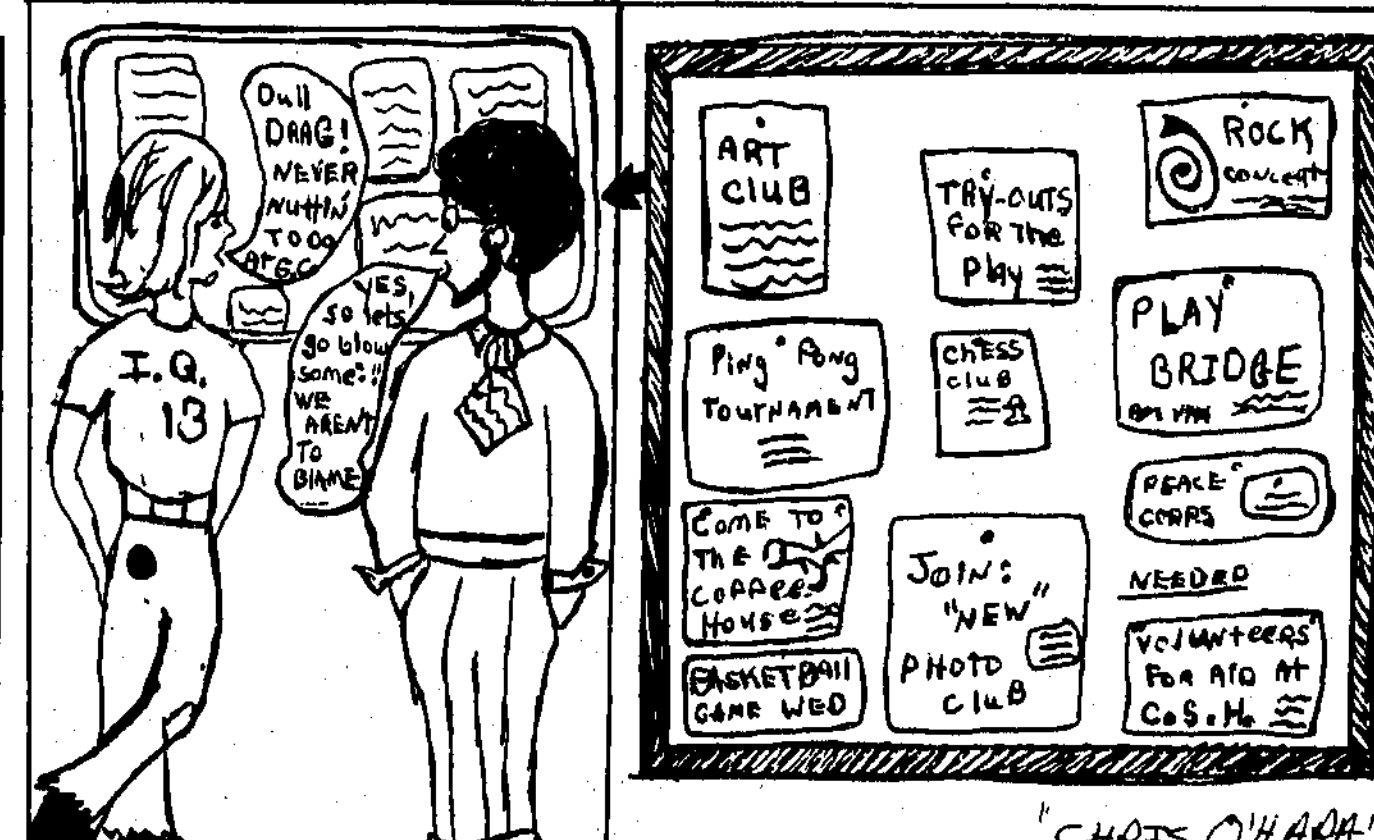 Dull
DRAG!
NEVER
NUTTIN'
TO DO
AT G.C.
YES,
so lets
go blow
some!!
WE
ARENT
TO
BLAME
I.Q.
13
ART
CLUB
TRY-OUTS
FOR The
Play
ROCK
CONCERT
Ping Pong
TOURNAMENT
ChESS
club
PLAY
BRIDGE
PEACE
CORPS
COME TO
The
COFFEE
HOUSE
JOIN:
"NEW"
PHOTO
CLUB
NEEDED
VOLUNTEERS
FOR AID AT
C.S.H.
BASKETBALL
GAME WED
"CHRIS O'HARA"